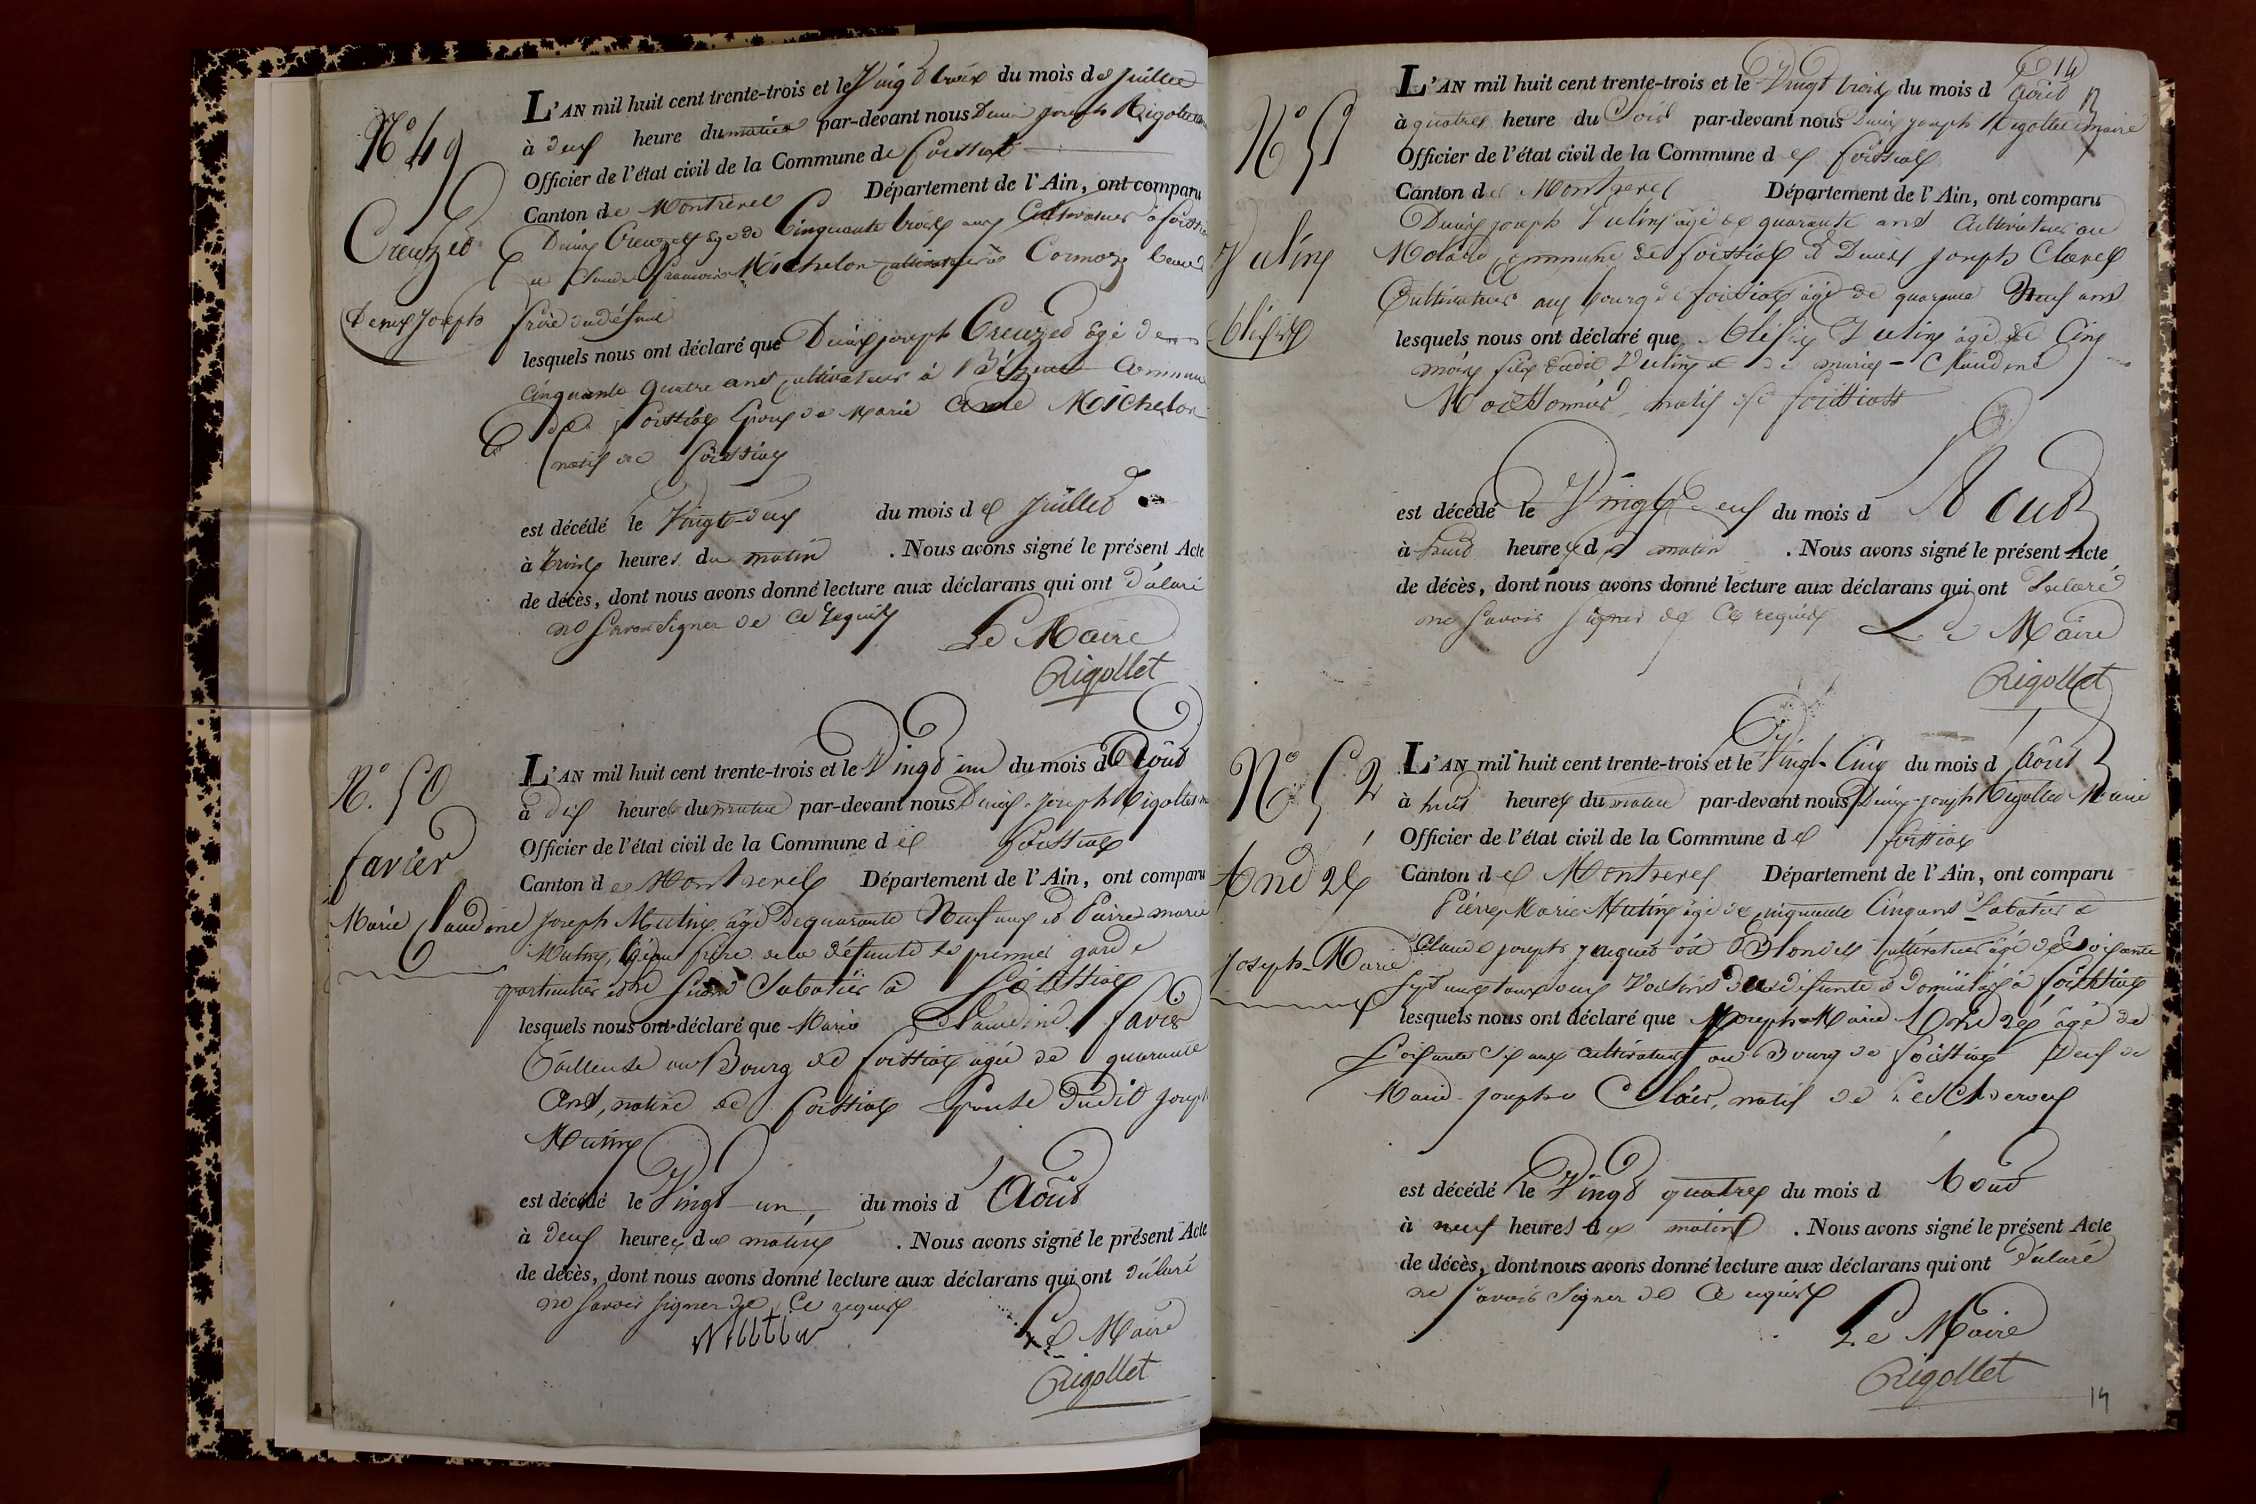 N.° 49
Creuzet
Denis Joseph
L'AN mil huit cent trente-trois et le Vingt trois du mois de Juillet
à deux heure du matin par-devant nous Denis Joseph Rigollet
Officier de l'état civil de la Commune de foissiat
Canton de Montrevel Département de l'Ain, ont comparu
Denis Creuzet âgé de Cinquante trois ans Cultivateur à foissiat
et Claude françois Michelon cultivateur à Cormoz
frère du défunt
lesquels nous ont déclaré que Denis joseph Creuzet âgé de
cinquante quatre ans cultivateur à Commune
de foissiat Epoux de Marie Michelon
natif de foissiat
est décédé le Vingt-deux du mois de juillet
à trois heures du matin . Nous avons signé le présent Acte
de décès, dont nous avons donné lecture aux déclarans qui ont déclaré
ne savoir signer de ce requis
Le Maire
Rigollet
N.° 50
favier
Marie Claudine
L'AN mil huit cent trente-trois et le Vingt un du mois d Août
à dix heure du matin par-devant nous Denis-Joseph Rigollet
Officier de l'état civil de la Commune de foissiat
Canton de Montrevel Département de l'Ain, ont comparu
Joseph Mutin âgé de quarante Neuf ans et Pierre marie
Mutin, frère de la défunte le premier garde
particulier et le Sabotier à foissiat
lesquels nous ont déclaré que Marie Claudine favier
tailleuse au Bourg de foissiat âgée de quarante
Ans, native de foissiat Epouse dudit Joseph
Mutin
est décédé le Vingt-un du mois d Août
à deux heures du matin . Nous avons signé le présent Acte
de décès, dont nous avons donné lecture aux déclarans qui ont déclaré
ne savoir signer de ce requis
Le Maire
Rigollet
14
N° 51
L'AN mil huit cent trente-trois et le Vingt trois du mois d Août
à quatre heure du Soir par-devant nous Denis joseph Rigollet maire
Officier de l'état civil de la Commune de foissiat
Canton de Montrevel Département de l'Ain, ont comparu
Denis joseph âgé de quarante ans Cultivateur au
Molard Commune de foissiat et Denis Joseph Clerc
Cultivateur au bourg de foissiat âgé de quarante Neuf ans
lesquels nous ont déclaré que âgé de Cinq
mois fils dudit et de marie-Claudine
Moissonnier natif de foissiat
est décédé le Vingt deux du mois d Aout
à huit heure du matin . Nous avons signé le présent Acte
de décès, dont nous avons donné lecture aux déclarans qui ont déclaré
ne savoir signer de ce requis
Le Maire
Rigollet
N° 52
Joseph-Marie
L'AN mil huit cent trente-trois et le Vingt-Cinq du mois d Août
à huit heures du matin par-devant nous Denis-Joseph Rigollet Maire
Officier de l'état civil de la Commune de foissiat
Canton de Montrevel Département de l'Ain, ont comparu
Pierre Marie Mutin âgé de cinquante Cinq ans Sabotier et
Claude joseph jaquet dit Blondel Cultivateur âgé de soixante
Sept ans tous deux Voisins du défunt et domiciliés à foissiat
lesquels nous ont déclaré que Joseph-Marie âgé de
Soixante Six ans cultivateur au Bourg de foissiat Veuf de
Marie-josephe Clair, natif de
est décédé le Vingt quatre du mois d Aout
à neuf heures du matin . Nous avons signé le présent Acte
de décès, dont nous avons donné lecture aux déclarans qui ont déclaré
ne savoir Signer de ce requis
Le Maire
Rigollet
14